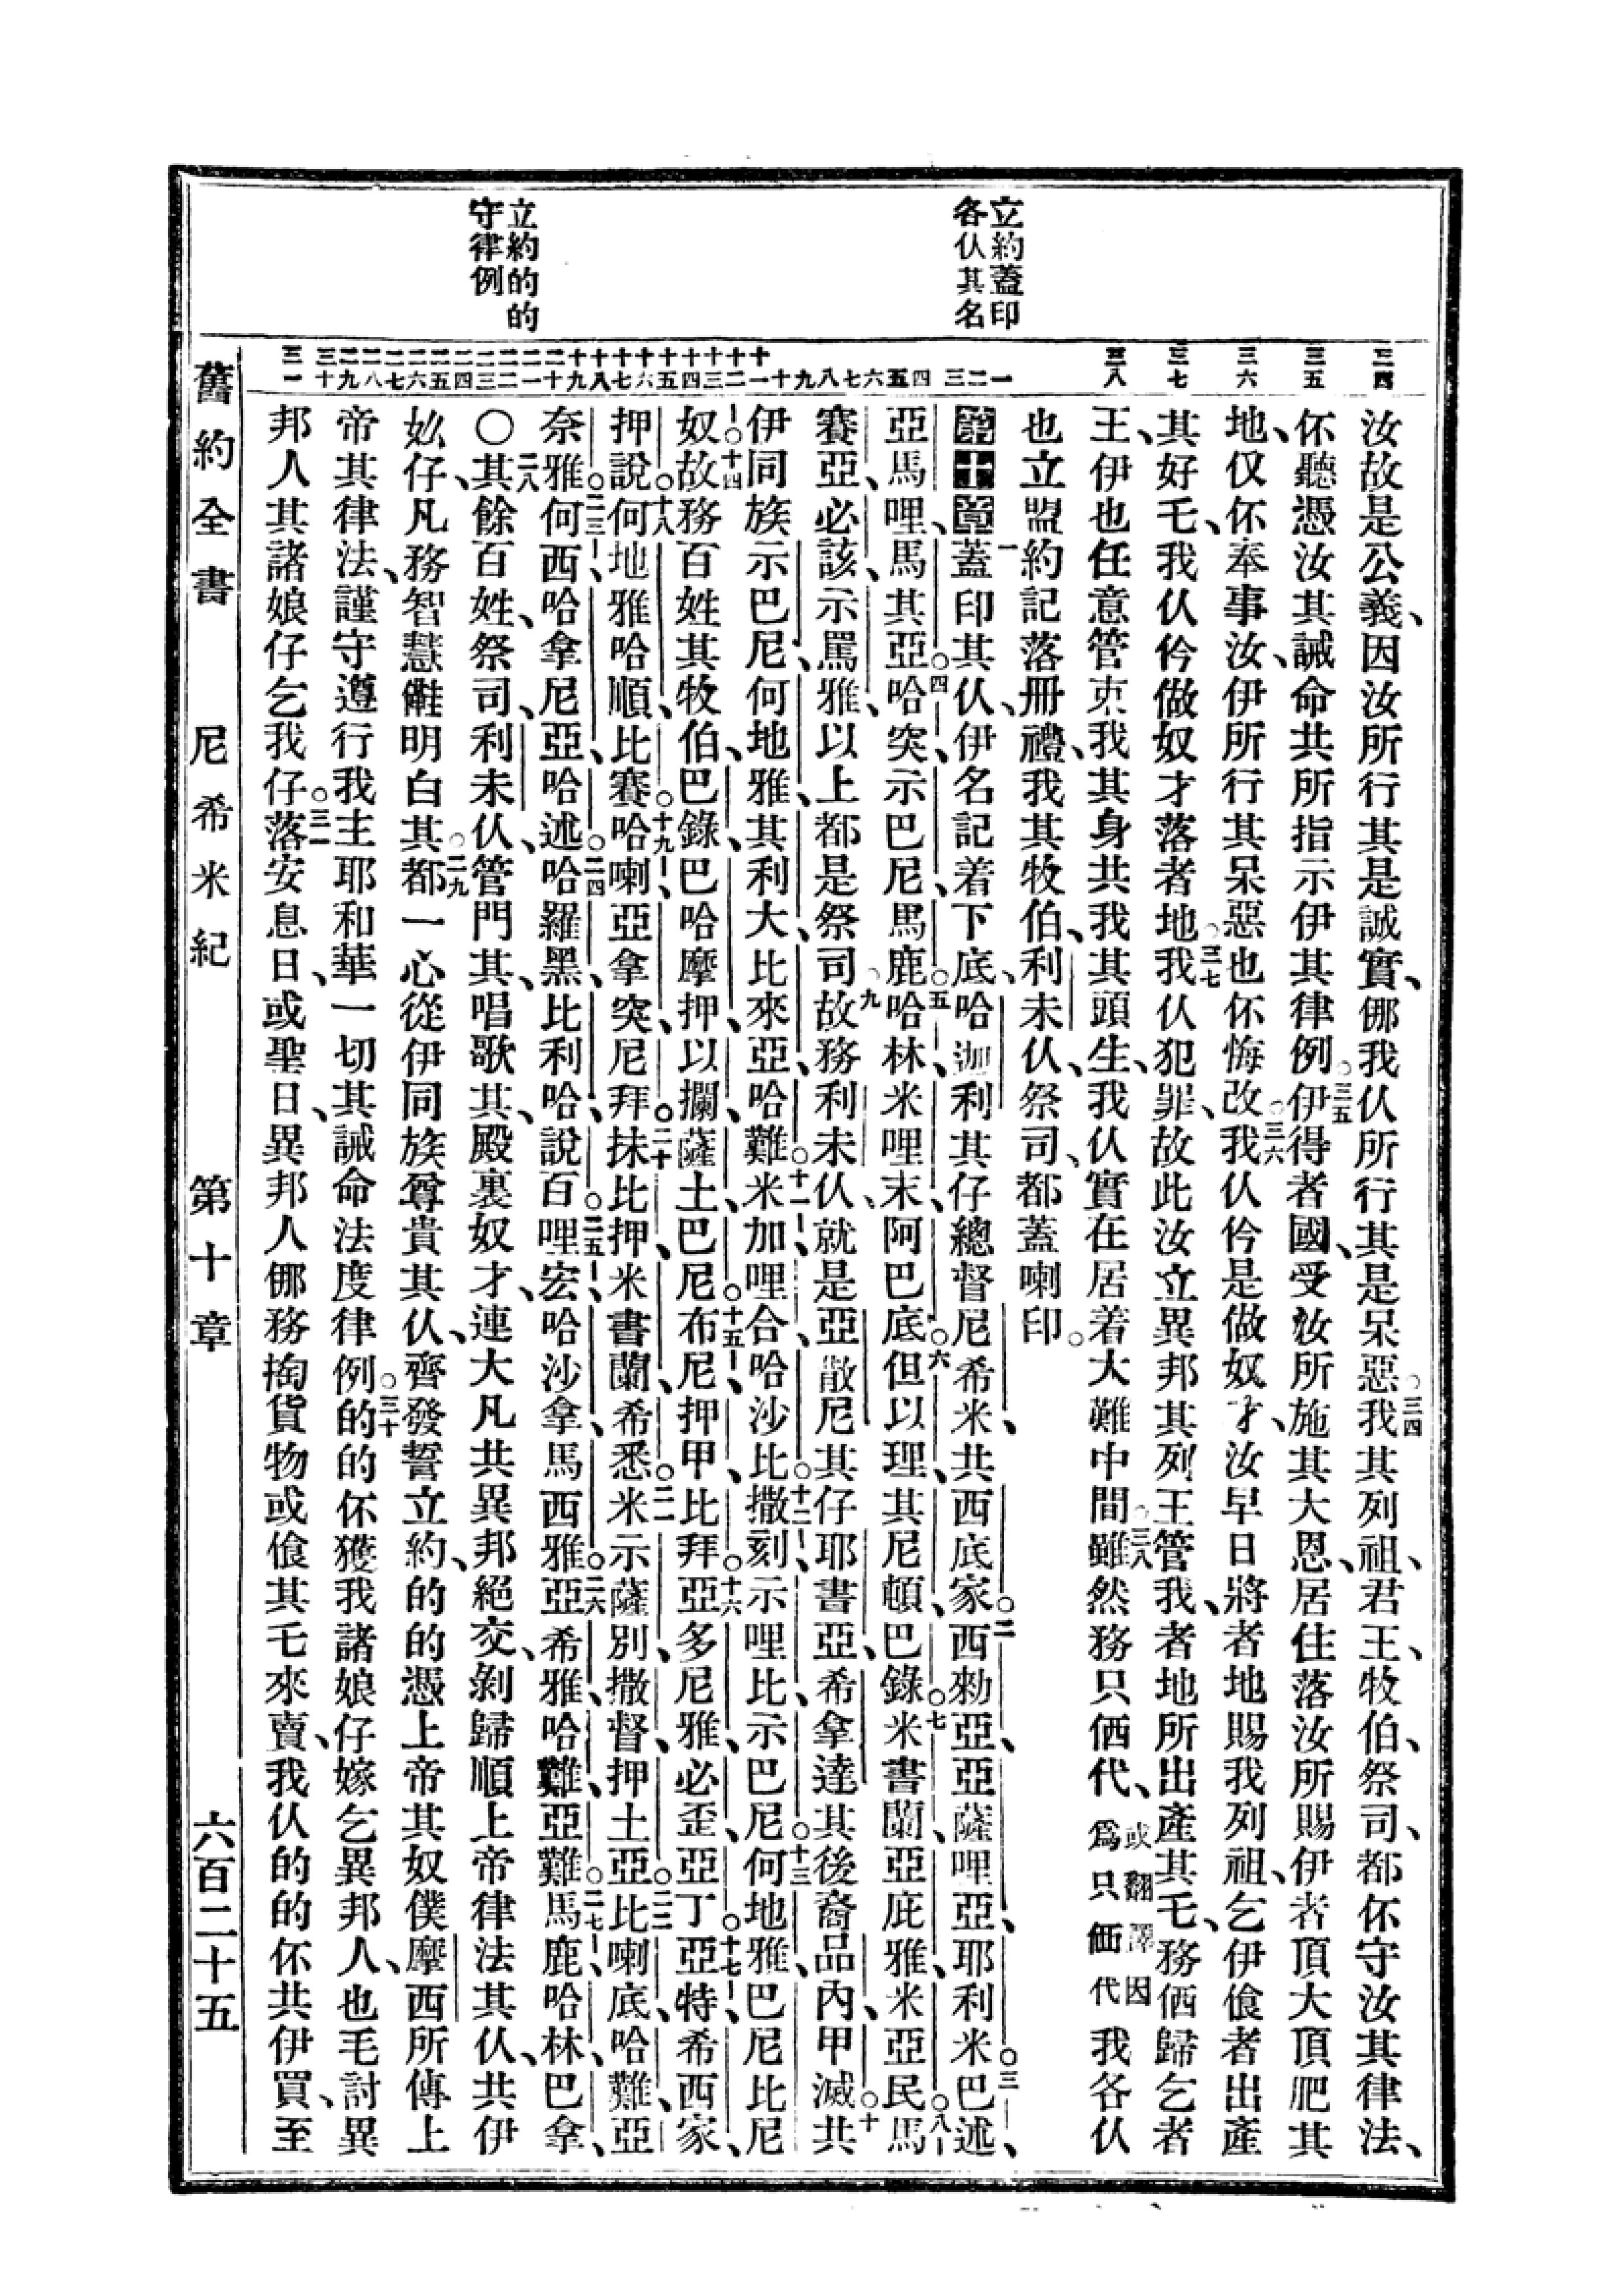 立約蓋印
各仈其名
立約的的
守律例
三四
三五
三六
三七
三八
一二三四五六七八九十十一十二十三十四十五十六十七十八十九二十二一二二二三二四二五二六二七二八二九三十三一
汝故是公義、因汝所行其是誠實、㑚我仈所行其是呆惡○三四我其列祖、君王、牧伯、祭司、都伓守汝其律法、
伓聽憑汝其誡命共所指示伊其律例○三五伊得者國、受汝所施其大恩、居住落汝所賜伊者頂大頂肥其
地、仅伓奉事汝、伊所行其呆惡也伓悔改○三六我仈仱是做奴才、汝早日將者地賜我列祖、乞伊飡者出產
其好乇、我仈仱做奴才落者地○三七我仈犯罪、故此汝立異邦其列王管我、者地所出產其乇、務𠍆歸乞者
王、伊也任意管束我其身共我其頭生、我仈實在居着大難中間○三八雖然務只𠍆代、或翻譯因爲只𠍆代我各仈
也立盟約記落冊禮、我其牧伯、利未仈、祭司、都蓋喇印。
第十章一蓋印其仈、伊名記着下底、哈迦利其仔總督尼希米、共西底家○二西勑亞、亞薩哩亞、耶利米○三巴述
亞馬哩、馬其亞○四哈突、示巴尼、馬鹿○五哈林、米哩末、阿巴底○六但以理、其尼頓、巴錄○七米書蘭、亞庇雅、米亞民○八馬
賽亞、必該、示罵雅、以上都是祭司○九故務利未仈、就是亞散尼其仔耶書亞、希拿達其後裔品內、甲滅○十共
伊同族示巴尼、何地雅、其利大、比來亞、哈難○十一米加、哩合、哈沙比○十二撒刻、示哩比、示巴尼○十三何地雅、巴尼、比尼
奴○十四故務百姓其牧伯、巴錄、巴哈摩押、以攔、薩土、巴尼○十五布尼、押甲、比拜○十六亞多尼雅、必歪、亞丁○十七亞特、希西家、
押說○十八何地雅、哈順、比賽○十九哈喇、亞拿突、尼拜○二十抹比押、米書蘭、希悉○二一米示薩別、撒督、押土亞○二二比喇底、哈難、亞
奈雅○二三何西、哈拿尼亞、哈述○二四哈羅黑、比利哈、說百○二五哩宏、哈沙拿、馬西雅○二六亞希雅、哈難、亞難○二七馬鹿、哈林、巴拿、
○二八其餘百姓、祭司、利未仈、管門其、唱歌其、殿裏奴才、連大凡共異邦絕交、剝歸順上帝律法其仈、共伊
妣仔、凡務智慧䧹明白其○二九都一心從伊同族尊貴其仈、齊發誓立約、的的憑上帝其奴僕摩西所傳上
帝其律法、謹守遵行我主耶和華一切其誡命法度律例○三十的的伓獲我諸娘仔嫁乞異邦人、也毛討異
邦人其諸娘仔乞我仔○三一落安息日、或聖日、異邦人㑚務掏貨物或飡其乇來賣、我仈的的伓共伊買、至
舊約全書　尼希米紀　第十章　六百二十五